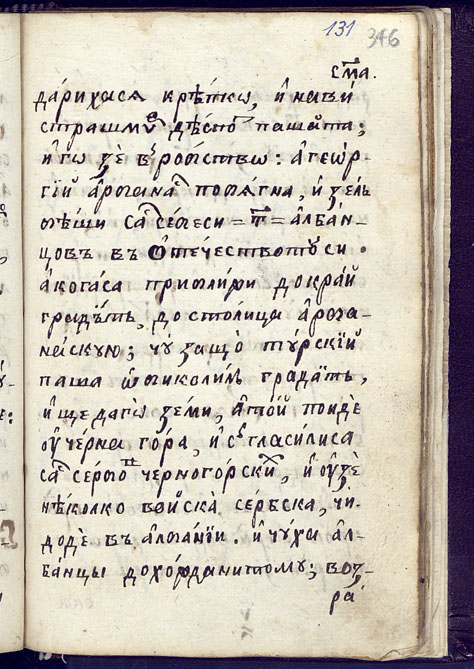 131 346
с҃ма.
дарихася крѣпкѡ, и нави
страшму дѣспо пашата;
и го зѐ в робство: а геѡр-
гїй арбана потѧгна, и зель
пѣши са себеси = т҃ = албан-
цовъ въ ѡтечествотоуси.
акогаса приближи докрай
градътъ, до столица арба-
нейскую; чу защо турскїй
паша ѡбиколилъ градатъ,
и ще даго земи, атой поиде
оу черна гора, и съгласилиса
са сербо черногорски, и оузѐ
нѣколко войска сербска, чи
додѐ въ албанїи. и чуха ал-
банцы дохожданитому; воз-
ра